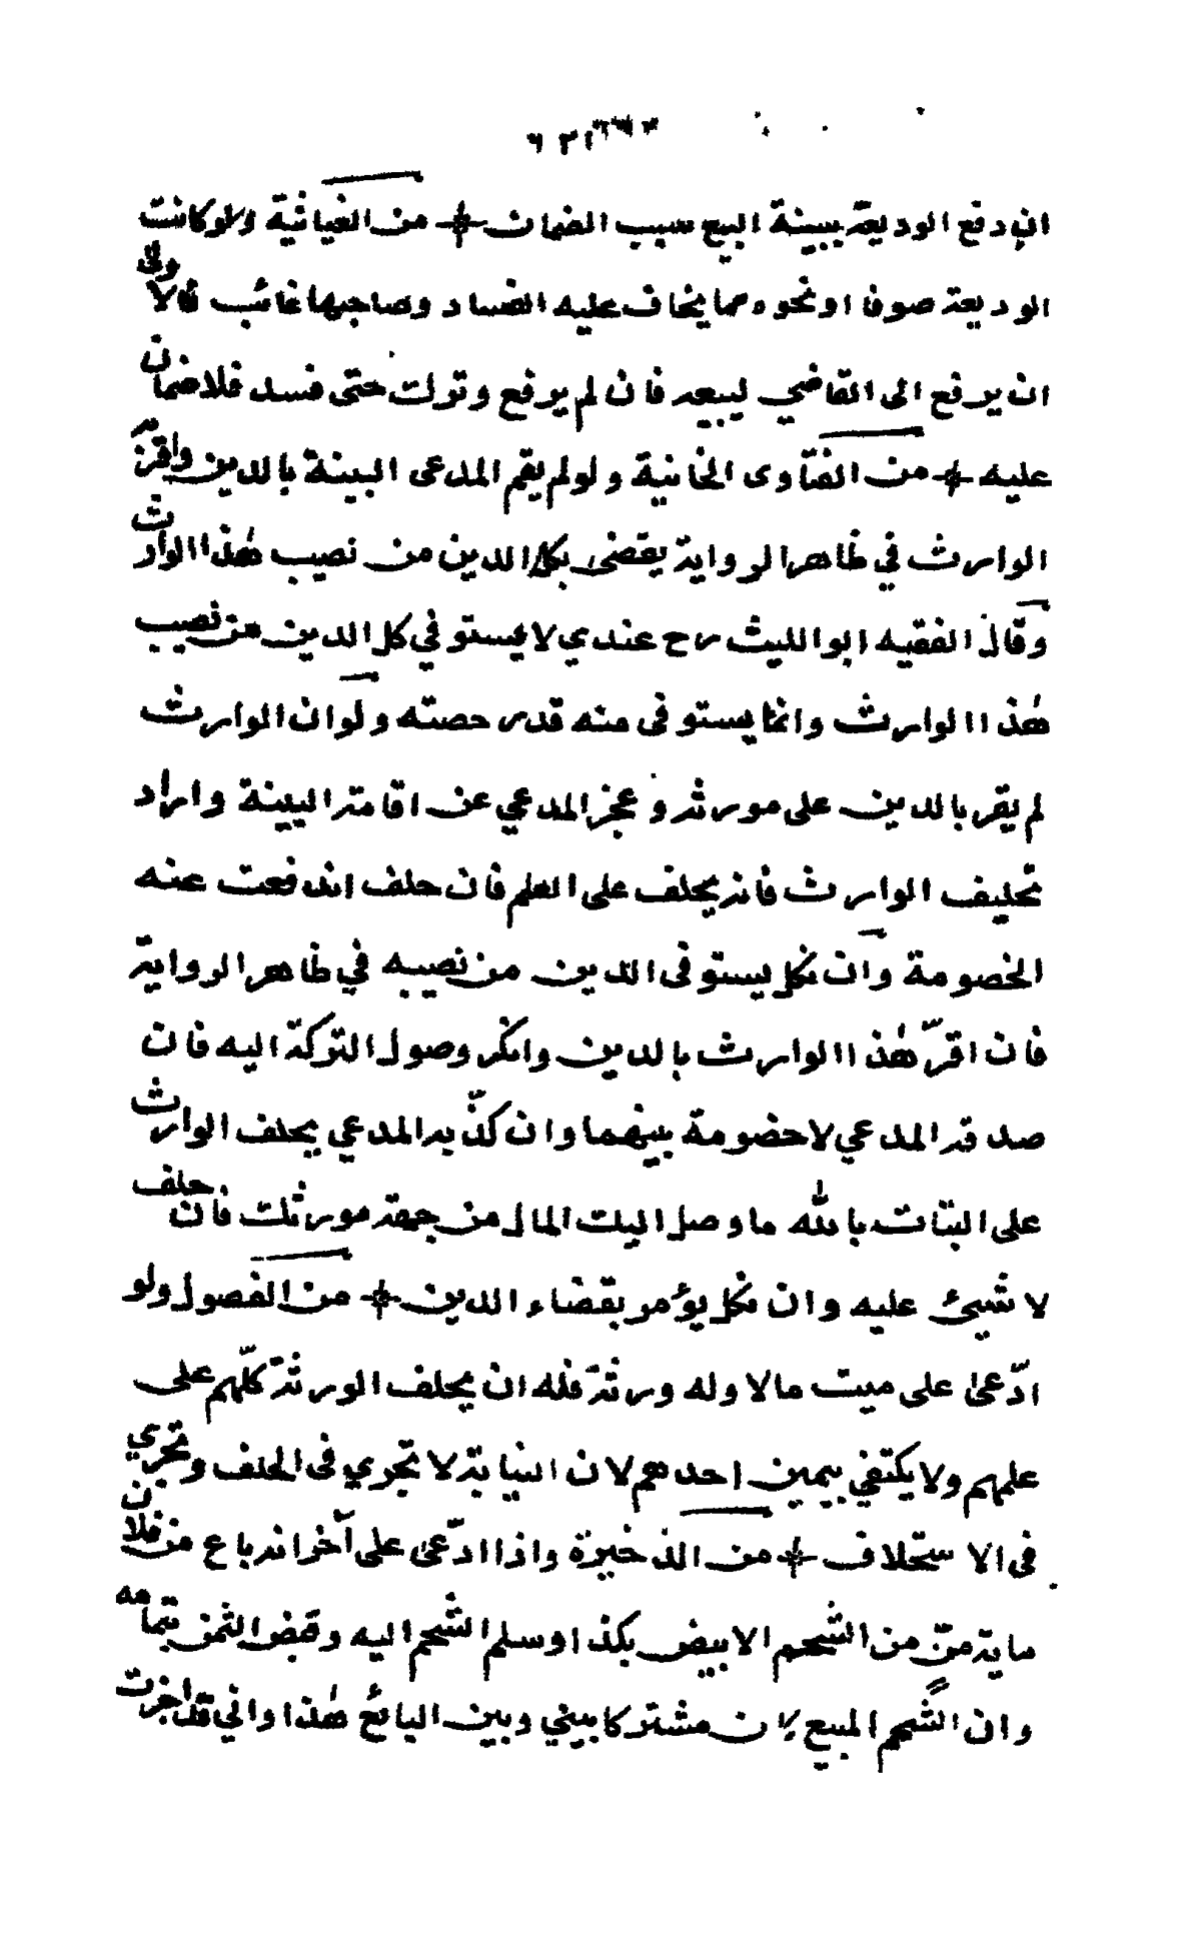 ٦٢١
ان دفع الوديعة ببينة البيع سبب الضمان ⁜ من الغياثية ولو كانت
الوديعة صوفا او نحوه مما يخاف عليه الفساد وصاحبها غائب فالاولى
ان يرفع الى القاضي ليبيعه فان لم يرفع وتركت حتى فسد فلا ضمان
عليه ⁜ من الفتاوى الخانية ولو لم يقم المدعى البينة بالدين واقرّ
الوارث في ظاهر الرواية يقضى بكل الدين من نصيب هذا الوارث
وقال الفقيه ابو الليث رح عندي لا يستوفي كل الدين من نصيب
هذا الوارث وانما يستوفى منه قدر حصته ولو ان الوارث
لم يقر بالدين على مورثه وعجز المدعي عن اقامة البينة واراد
تحليف الوارث فانه يحلف على العلم فان حلف اندفعت عنه
الخصومة وان نكل يستوفى الدين من نصيبه في ظاهر الرواية
فان اقرّ هذا الوارث بالدين وانكر وصول التركة اليه فان
صدقه المدعي لا خضومة بينهما وان كذّبه المدعي يحلف الوارث
على البتات بالله ما وصل اليك المال من جهة مورثك فان حلف
لا شيئ عليه وان نكل يؤمر بقضاء الدين ⁜ من الفصول ولو
ادّعى على ميت مالا وله ورثة فله ان يحلف الورثة كلّهم على
علمهم ولا يكتفي بيمين احدهم لان النيابة لا تجري فى الحلف وتجري
فى الاستحلاف ⁜ من الذخيرة واذا ادّعى على آخر انه باع من فلان
ماية منّ من الشحم الابيض بكذا وسلم الشحم اليه وقبض الثمن بتمامه
وان الشحم المبيع كان مشتركا بيني وبين البائع هذا واني قد اجزت